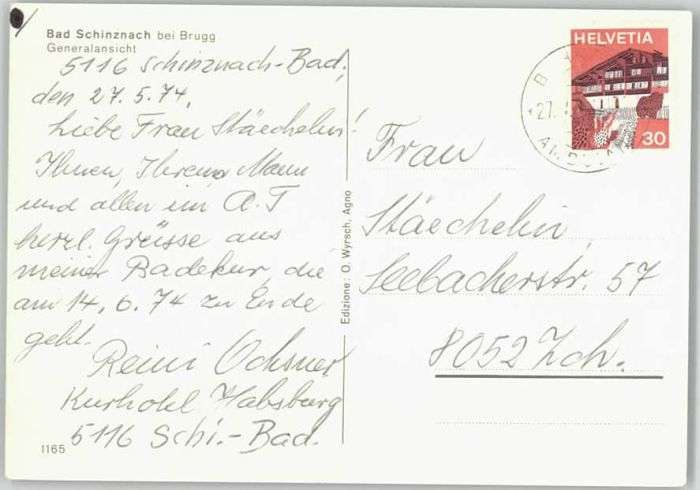 Bad Schinznach bei Brugg
Generalansicht
5116 Schinznach-Bad,
den 27.5.74,
Liebe Frau Stäechelin!
Ihnen, Ihrem Mann
und allen im A.T
herzl. Grüsse aus
meiner Badekur, die
am 14.6.74 zu Ende
geht.
Reini Ochsner
Kurhotel Habsburg
5116 Schi.-Bad.
1165
Edizione: O. Wyrsch, Agno
HELVETIA
30
27.
Frau
Stäechelin,
Seebacherstr. 57
8052 Zch.